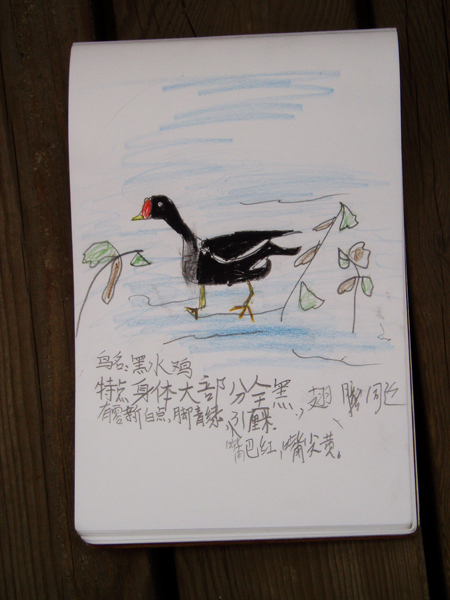 鸟名:黑水鸡
特点身体大部分全黑,翅
有零新白点,脚青绿,
嘴巴红,嘴尖黄。